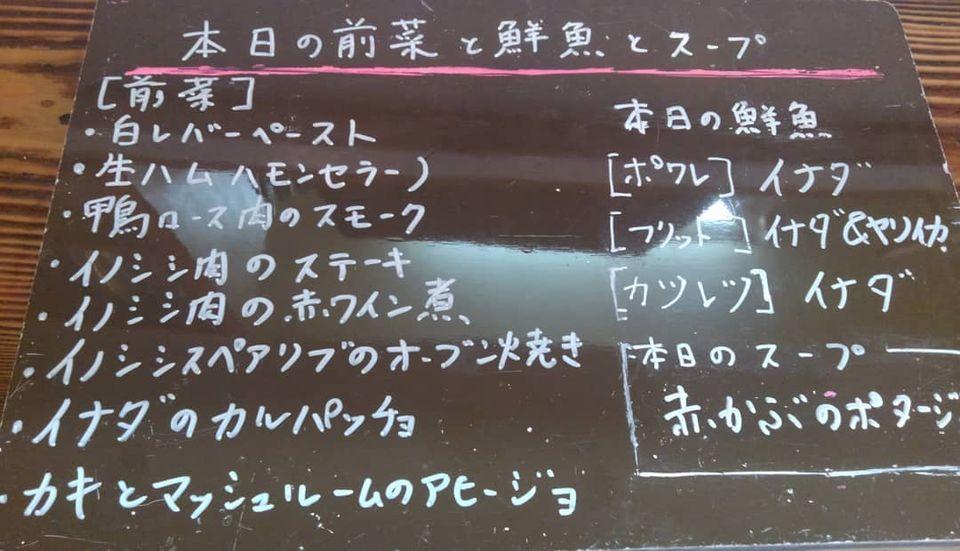 本日の前菜と鮮魚とスープ
[前菜]
・白レバーペースト
・生ハムハモンセラーノ
・鴨ロース肉のスモーク
・イノシシ肉のステーキ
・イノシシ肉の赤ワイン煮
・イノシシスペアリブのオーブン焼き
・イナダのカルパッチョ
・カキとマッシュルームのアヒージョ
本日の鮮魚
[ポワレ] イナダ
[フリット] イナダ&ヤリイカ
[カツレツ] イナダ
本日のスープ
赤かぶのポタージ